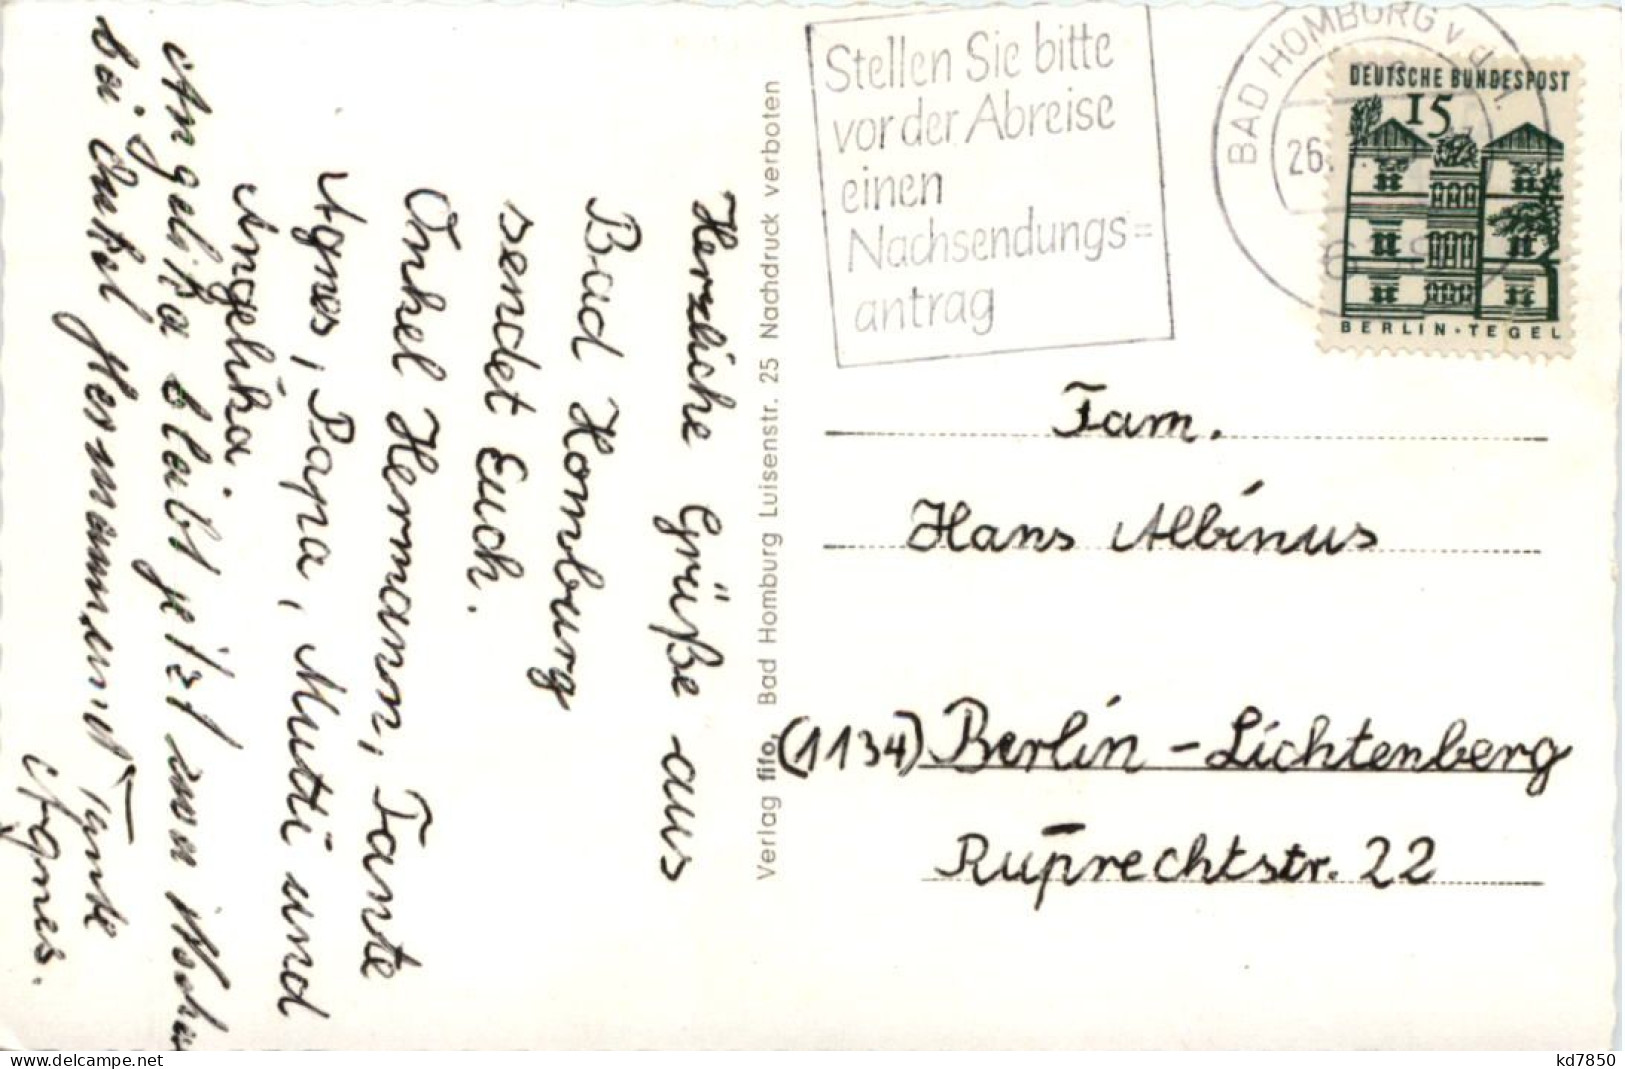 Herzliche Grüße aus
Bad Homburg
sendet Euch.
Onkel Hermann, Tante
Agnes, Papa, Mutti und
Angelika.
Angelika bleibt jetzt
bei Onkel Hermann und Tante
Agnes.
Verlag fifo, Bad Homburg Luisenstr. 25 Nachdruck verboten
Stellen Sie bitte
vor der Abreise
einen
Nachsendungs=
antrag
BAD HOMBURG v d
26.
DEUTSCHE BUNDESPOST
15
BERLIN·TEGEL
Fam.
Hans Albinus
(1134) Berlin-Lichtenberg
Ruprechtstr. 22
www.delcampe.net
kd7850